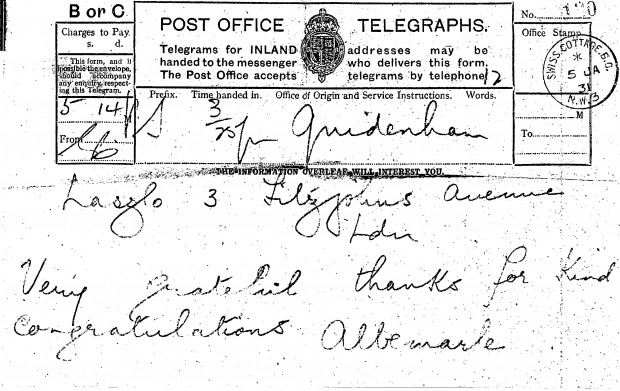 B or C
Charges to Pay.
s. d.
This form, and if
possible the envelope,
should accompany
any enquiry, respect-
ing this Telegram.
POST OFFICE TELEGRAPHS.
Telegrams for INLAND addresses may be
handed to the messenger who delivers this form.
The Post Office accepts telegrams by telephone
No.
Office Stamp.
SWISS COTTAGE. S.O.
5 JA
31
N.W.3
Prefix. Time handed in. Office of Origin and Service Instructions. Words.
12
5 14
S 3/25 pm Quidenham
From
M
To
THE INFORMATION OVERLEAF WILL INTEREST YOU.
Laszlo 3 Fitzjohns Avenue
Ldn
Very grateful thanks for kind
congratulations Albemarle